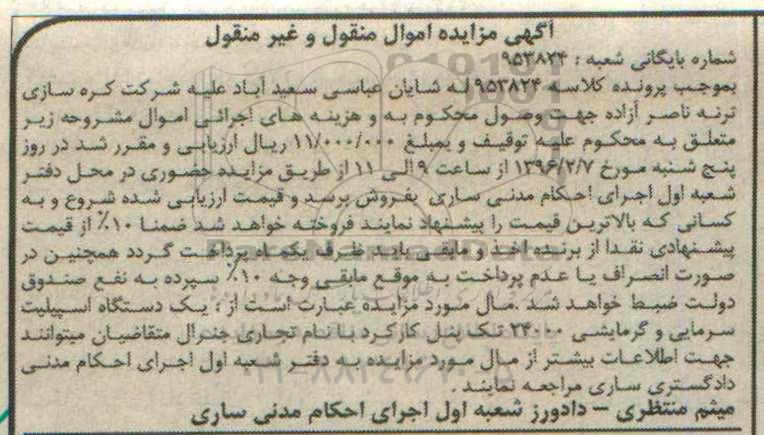 آگهی مزایده اموال منقول و غیر منقول
شماره بایگانی شعبه : ۹۵۳۸۲۴
بموجب پرونده کلاسه ۹۵۳۸۲۴ له شایان عباسی سعید آباد علیه شرکت کره سازی
ترنه ناصر آزاده جهت وصول محکوم به و هزینه های اجرائی اموال مشروحه زیر
متعلق به محکوم علیه توقیف و بمبلغ ۱۱/۰۰۰/۰۰۰ ریال ارزیابی و مقرر شد در روز
پنج شنبه مورخ ۱۳۹۶/۲/۷ از ساعت ۹ الی ۱۱ از طریق مزایده حضوری در محل دفتر
شعبه اول اجرای احکام مدنی ساری بفروش برسد و قیمت ارزیابی شده شروع و به
کسانی که بالاترین قیمت را پیشنهاد نمایند فروخته خواهد شد ضمنا ۱۰٪ از قیمت
پیشنهادی نقدا از برنده اخذ و مابقی باید ظرف یکماه پرداخت گردد همچنین در
صورت انصراف یا عدم پرداخت به موقع مابقی وجه ۱۰٪ سپرده به نفع صندوق
دولت ضبط خواهد شد .مال مورد مزایده عبارت است از : یک دستگاه اسپیلیت
سرمایی و گرمایشی ۲۴۰۰۰ تک پنل کارکرد با نام تجاری جنرال متقاضیان میتوانند
جهت اطلاعات بیشتر از مال مورد مزایده به دفتر شعبه اول اجرای احکام مدنی
دادگستری ساری مراجعه نمایند .
میثم منتظری – دادورز شعبه اول اجرای احکام مدنی ساری